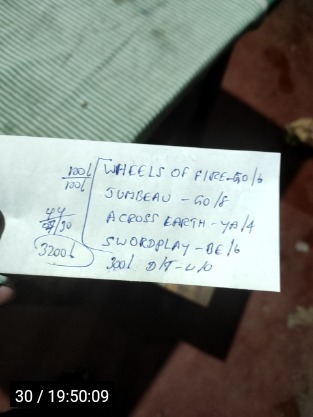 100l WHEELS OF FIRE-GO/6
100l JUMBEAU - GO/8
ACROSS EARTH - YA/4
44
/30 SWORDPLAY - BE/6
3200l 300l D/T - U/O
30 / 19:50:09